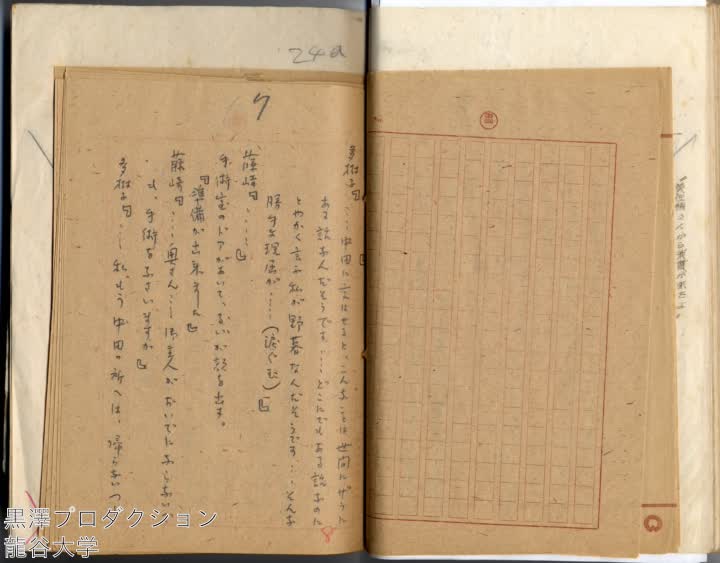 「美佐緒さんから葉書が来たよ。
多樹子「……中田に言はせると、こんなことは世間にザラに
ある話なんだそうです……どこにでもある話なのに
とやかく言ふ私が野暮なんだそうです……そんな
勝手な理屈が……(涙ぐむ)」
藤崎「……」
手術室のドアがあいて、るいが顔を出す。
「準備が出来ました」
藤崎「……奥さん……御主人がおいでにならない
でも、手術をなさいますか」
多樹子「……私、もう中田の所へは、帰らないつ
24a
7
8
黒澤プロダクション
龍谷大学